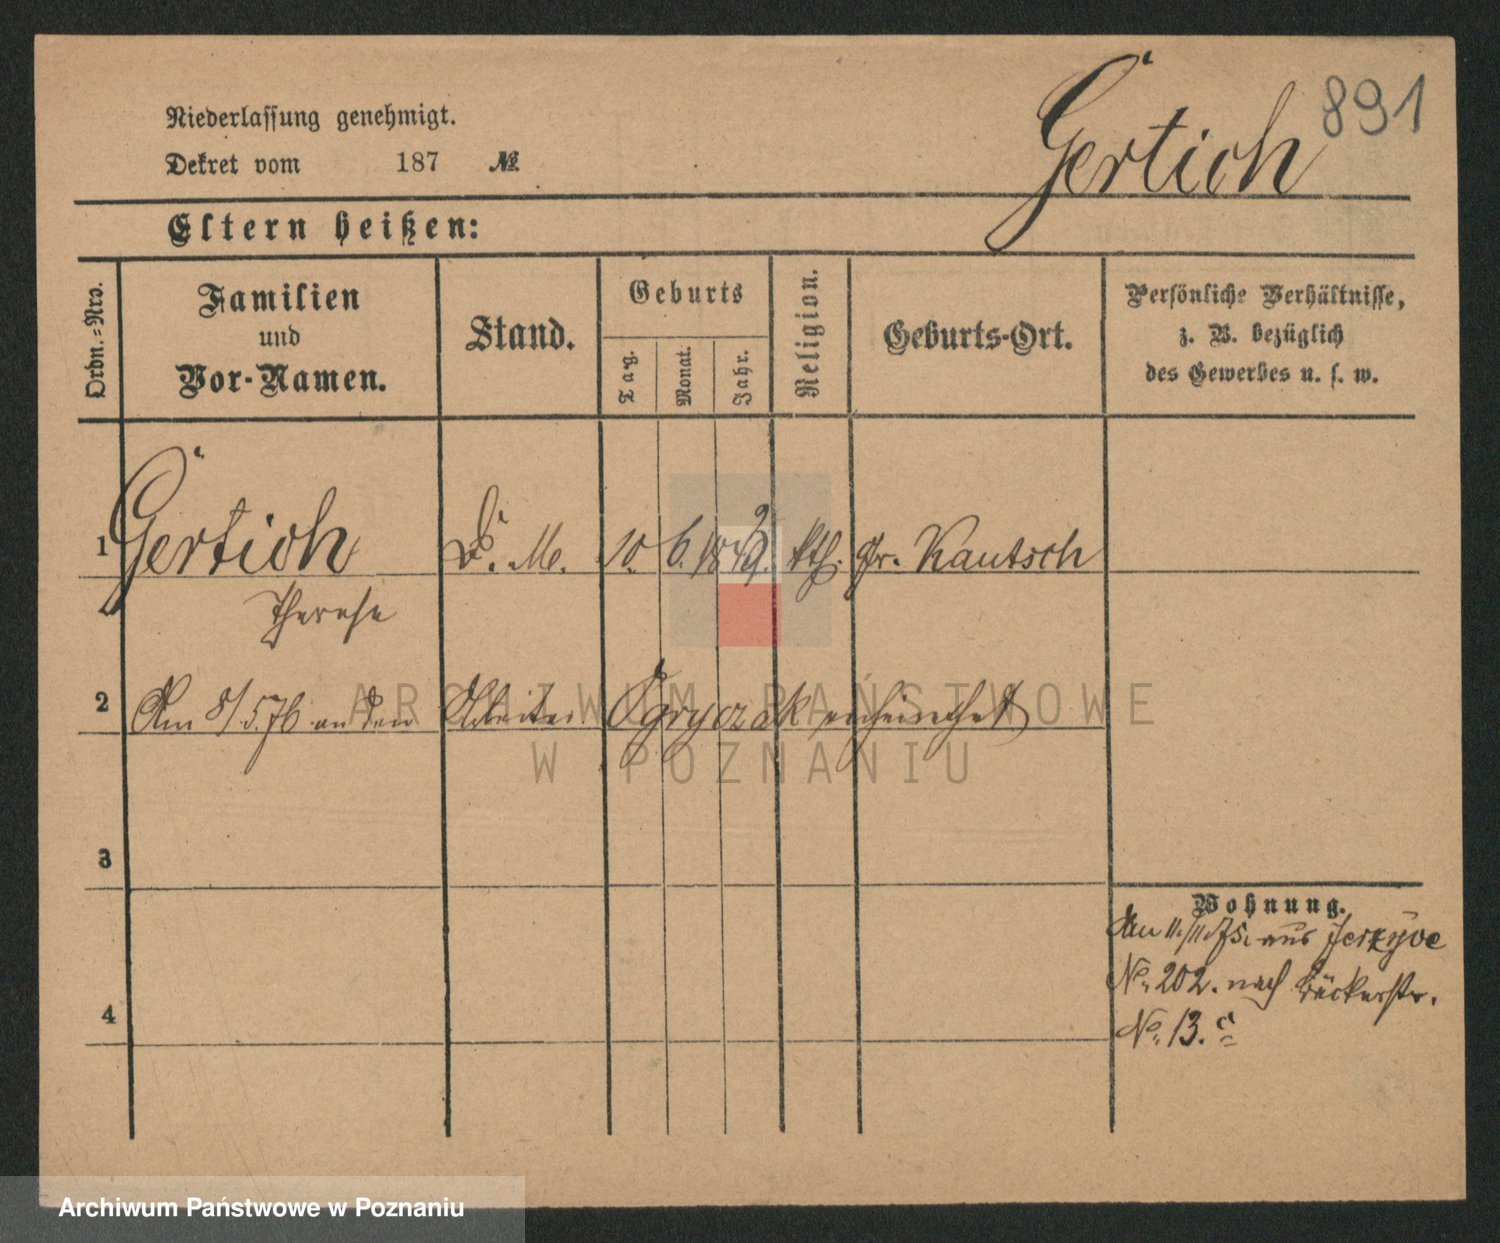 Niederlassung genehmigt.
Dekret vom 187 №
Gertich 891
Eltern heißen:
Ordn.=Nro.
Familien
und
Vor-Namen.
Stand.
Geburts
Tag.
Monat.
Jahr.
Religion.
Geburts-Ort.
Persönliche Verhältnisse,
z. B. bezüglich
des Gewerbes u. s. w.
1 Gertich D. M. 10. 6. 1849. kth. gr. Kautsch
Therese
2 Am 8/5.76 an den Arbeiter Ogryczak verheirathet
3
Wohnung.
Am 11./11.75. aus Jerzyce
No. 202. nach Bäckerstr.
No. 13. c
4
ARCHIWUM PAŃSTWOWE
W POZNANIU
Archiwum Państwowe w Poznaniu